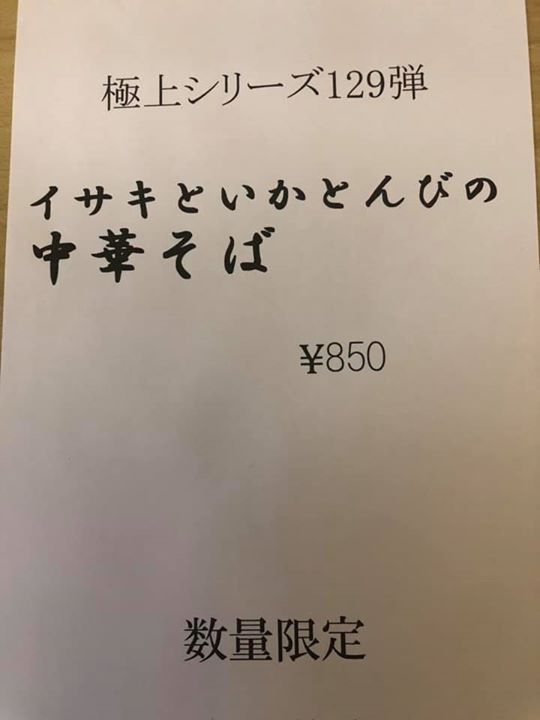 極上シリーズ129弾
イサキといかとんびの
中華そば
¥850
数量限定